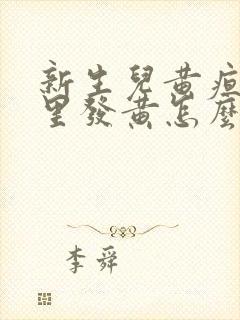 新生兒黃疸
里發黃怎麼
李舜